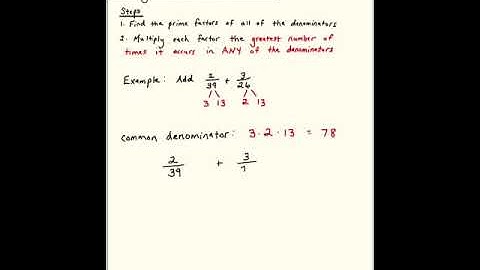 Steps
1. Find the prime factors of all of the denominators
2. Multiply each factor the greatest number of
times it occurs in ANY of the denominators
Example: Add 2/39 + 3/26
3 13 2 13
common denominator: 3 · 2 · 13 = 78
2/39 + 3/